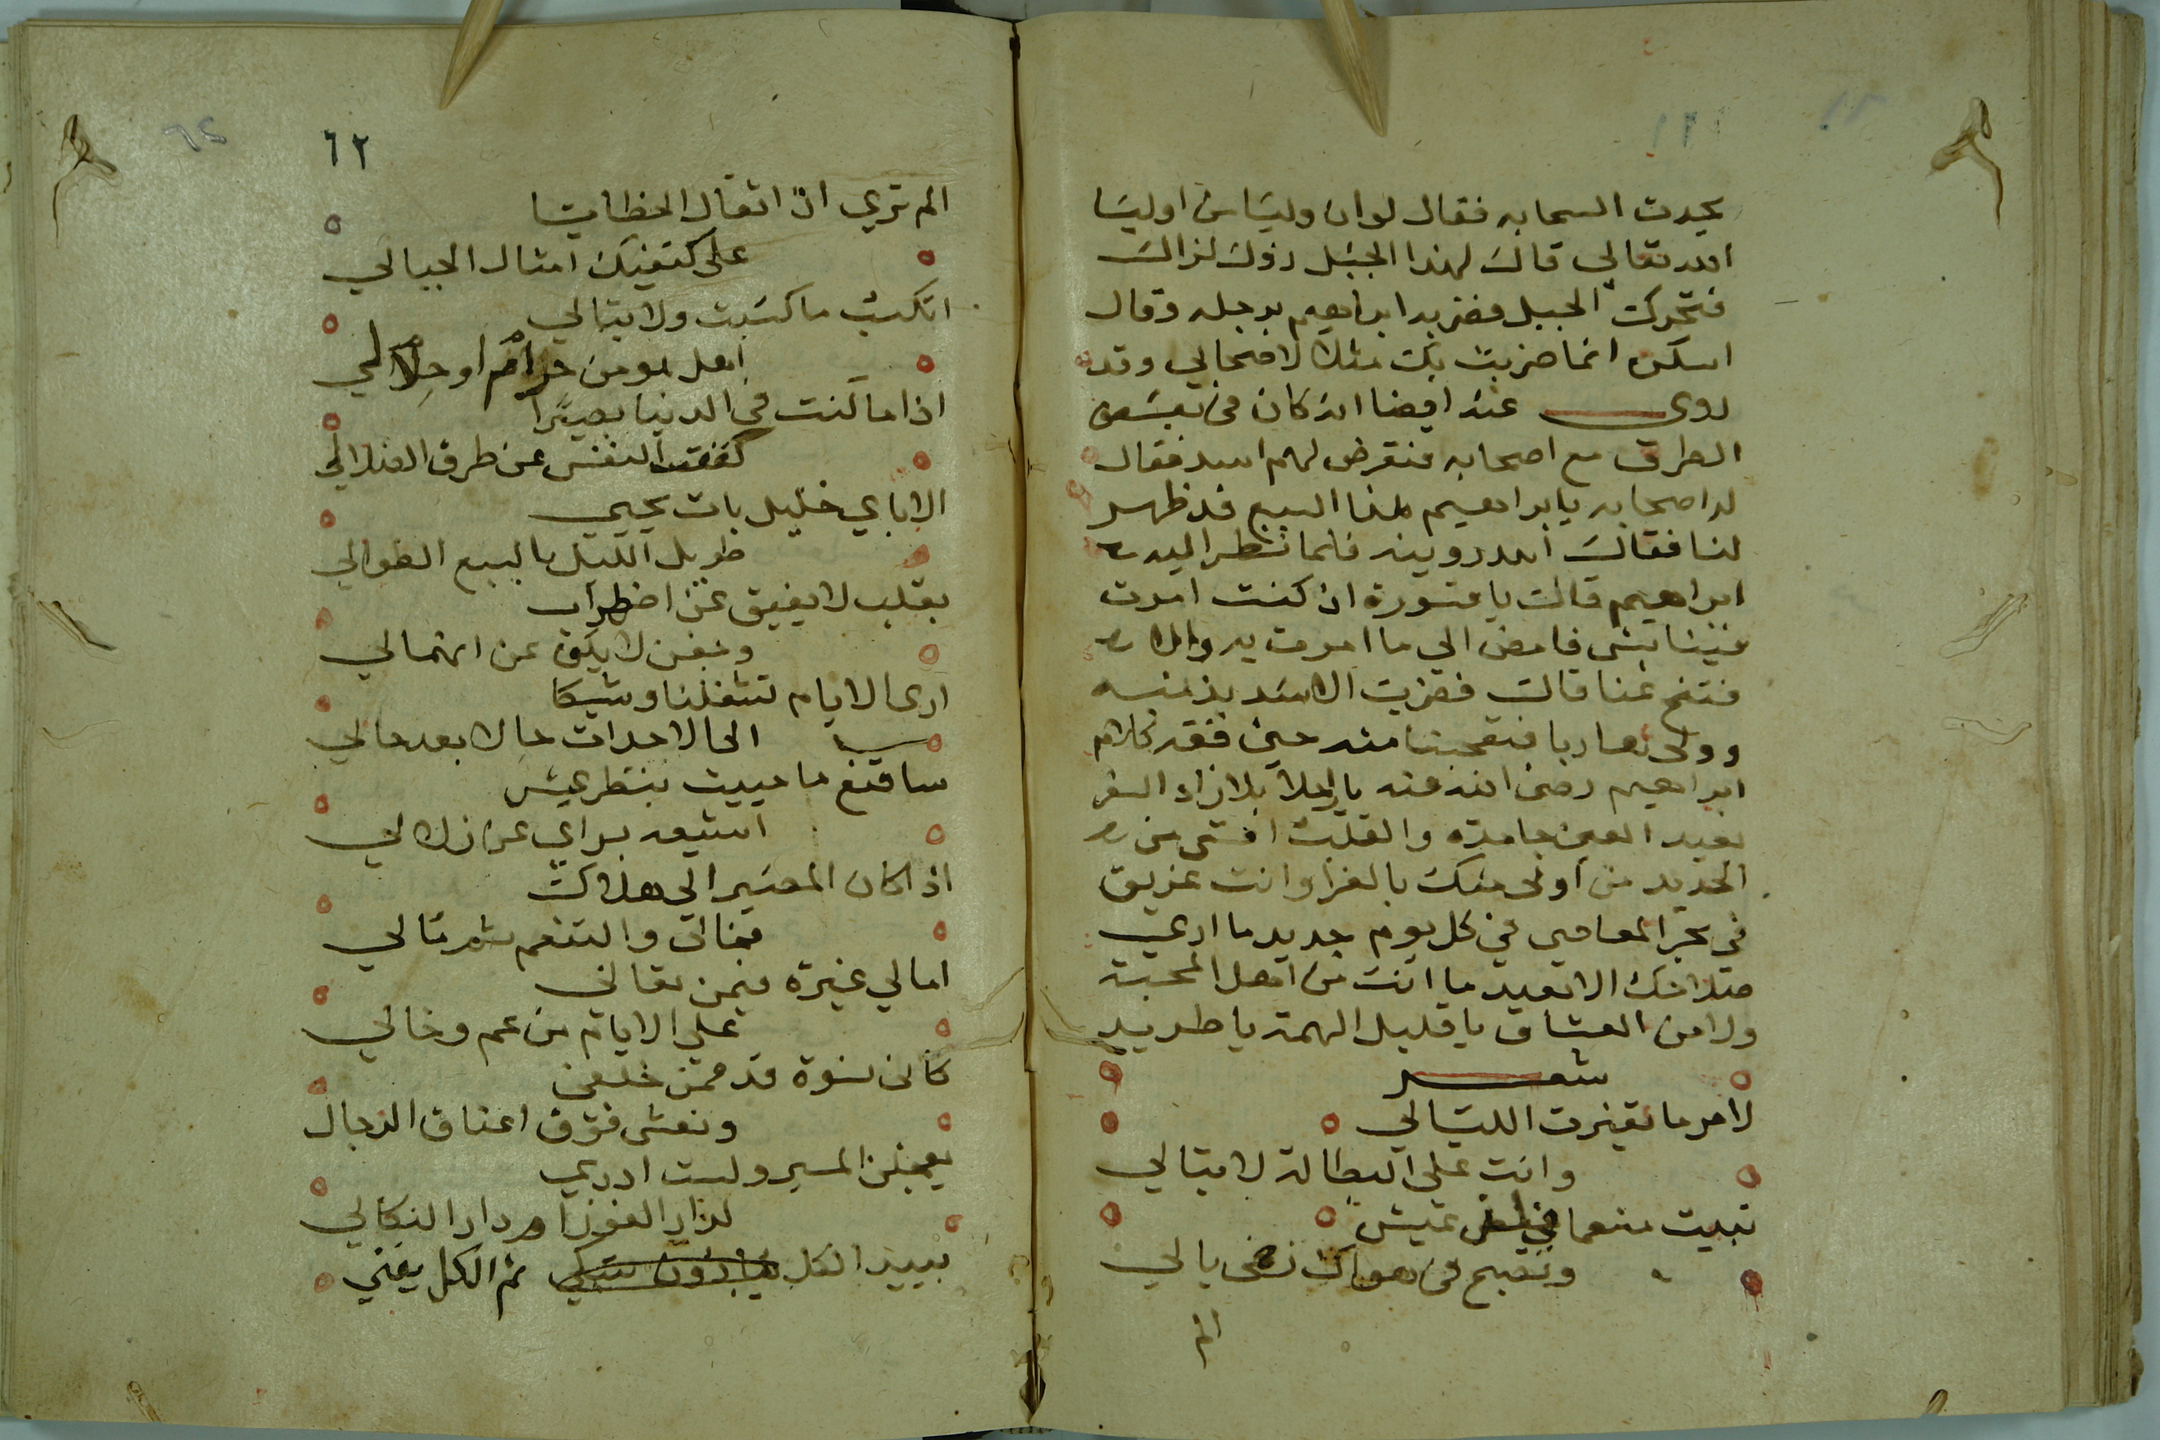 يحدث اصحابه فقال لو ان وليا من اوليا
الله تعالى قال لهذا الجبل زول لزال
فتحركت الجبل فضربه ابراهيم برجله وقال
اسكن انما ضربت بك مثلا لاصحابي وقد
روى عنه ايضا انه كان في بعض
الطرق مع اصحابه فتعرض لهم اسد فقال
له اصحابه يا ابراهيم هذا السبع قد ظهر
لنا فقال فلما نظر اليه
ابراهيم قال يا قسورة ان كنت امرت
فينا بشى فامض الى ما امرت به والا
فتنح عنا قال فضرب الاسد بذنبه
وولى هاربا فتعجبنا منه حين فقه كلام
ابراهيم رضى الله عنه يا راحلا بلا زاد السفر
بعيد العين جامدة والقلب اقسى من
الحديد من اولى منك بالعزا وانت غريق
في بحر المعاصي في كل يوم جديد ما ارى
مثلا منك الا بعيد ما انت من اهل المحبة
ولا من العشاق يا قليل الهمة يا طريد
شعر
لامر ما تغيرت الليالي
وانت على البطالة لا تبالي
تبيت منعما في خفض عيش
وتصبح في هواك رخى بالي
الم
٦٢
الم تري ان اثقال الخطايا
على كتفيك امثال الجبالي
اتكسب ما كسبت ولا تبالي
اهل هو من حرام او حلالي
اذا ما كنت في الدنيا بصيرا
كففت النفس عن طرق الضلالي
الا باي خليل بات يحيي
طويل الليل بالسبع الطوالي
بقلب لا يفيق عن اضطراب
وجفن لا يكف عن انهمالي
ارى الايام تنقلنا وشيكا
الى الاحداث حالا بعد حالي
ساقنع ما حييت بشطر عيش
اذا كان المصير الى هلاك
فمالي والتنعم ثم مالي
امالي عبرة فيمن تفانى
على الايام من عم وخالي
كاني بنسوة قد قمن خلفي
ونعشى فوق اعناق الرجال
يعجلن المسير ولست ادري
لدار الفوز ام دار النكالي
يبيد الكل ثم الكل يفني